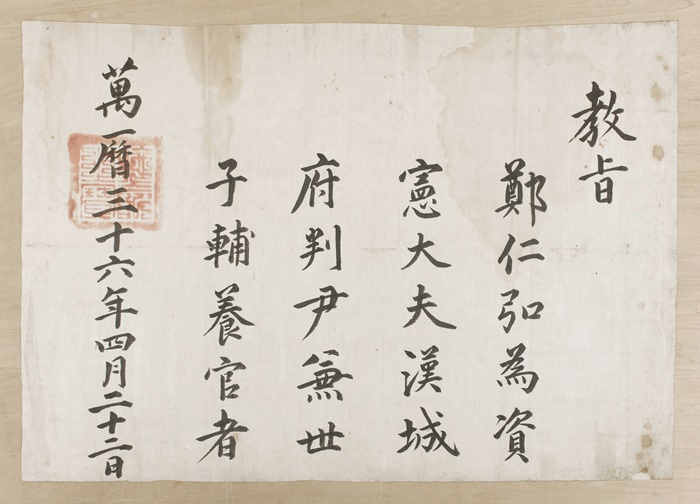 教旨
鄭仁弘為資
憲大夫漢城
府判尹兼世
子輔養官者
萬曆三十六年四月二十二日